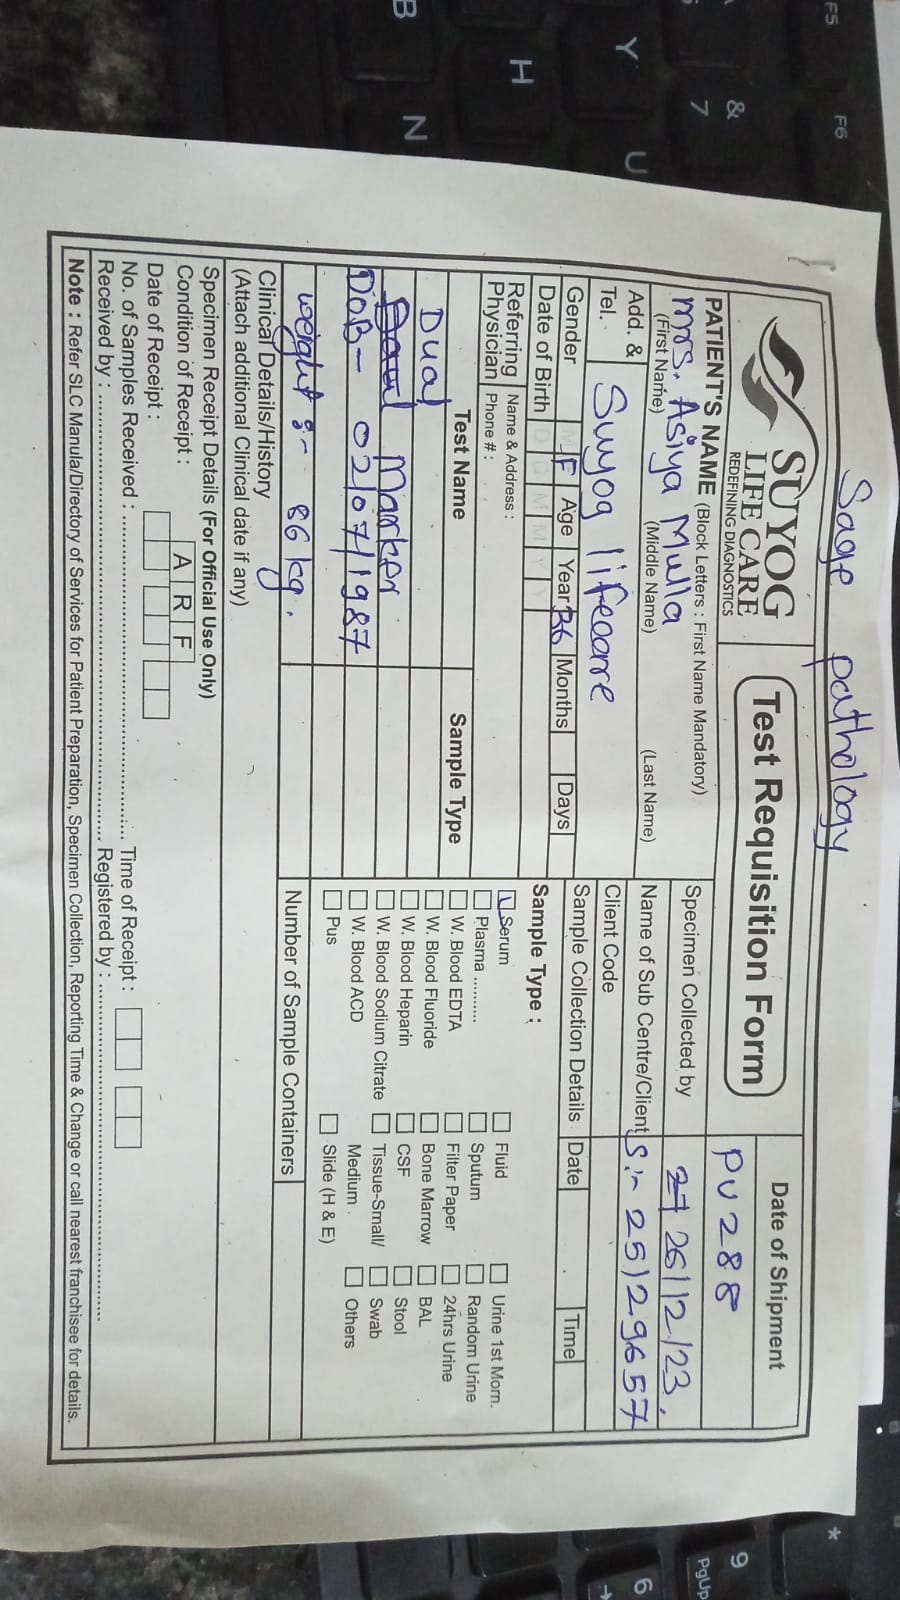 Sage pathology
SUYOG
LIFE CARE
REDEFINING DIAGNOSTICS
Test Requisition Form
Date of Shipment
PU288
PATIENT'S NAME (Block Letters : First Name Mandatory)
Mrs. Asiya Mulla
(First Name) (Middle Name) (Last Name)
Specimen Collected by
27 26/12/23,
Add. &
Tel.
Suyog lifecare
Name of Sub Centre/Client
S:- 25129657
Client Code
Gender M F Age Year 36 Months Days
Sample Collection Details Date Time
Date of Birth D D M M Y Y
Referring
Physician
Name & Address :
Phone # :
Test Name Sample Type
Dual
Marker
DOB- 02/07/1987
weight :- 86 kg.
Sample Type :
Serum Fluid Urine 1st Morn.
Plasma ........... Sputum Random Urine
W. Blood EDTA Filter Paper 24hrs Urine
W. Blood Fluoride Bone Marrow BAL
W. Blood Heparin CSF Stool
W. Blood Sodium Citrate Tissue-Small/ Swab
W. Blood ACD Medium Others
Pus Slide (H & E)
Number of Sample Containers
Clinical Details/History
(Attach additional Clinical date if any)
Specimen Receipt Details (For Official Use Only)
Condition of Receipt : A R F
Date of Receipt : Time of Receipt :
No. of Samples Received :
Received by : Registered by :
Note : Refer SLC Manula/Directory of Services for Patient Preparation, Specimen Collection, Reporting Time & Change or call nearest franchisee for details.
F5
F6
&
7
Y
U
H
B
N
*
9
PgUp
6